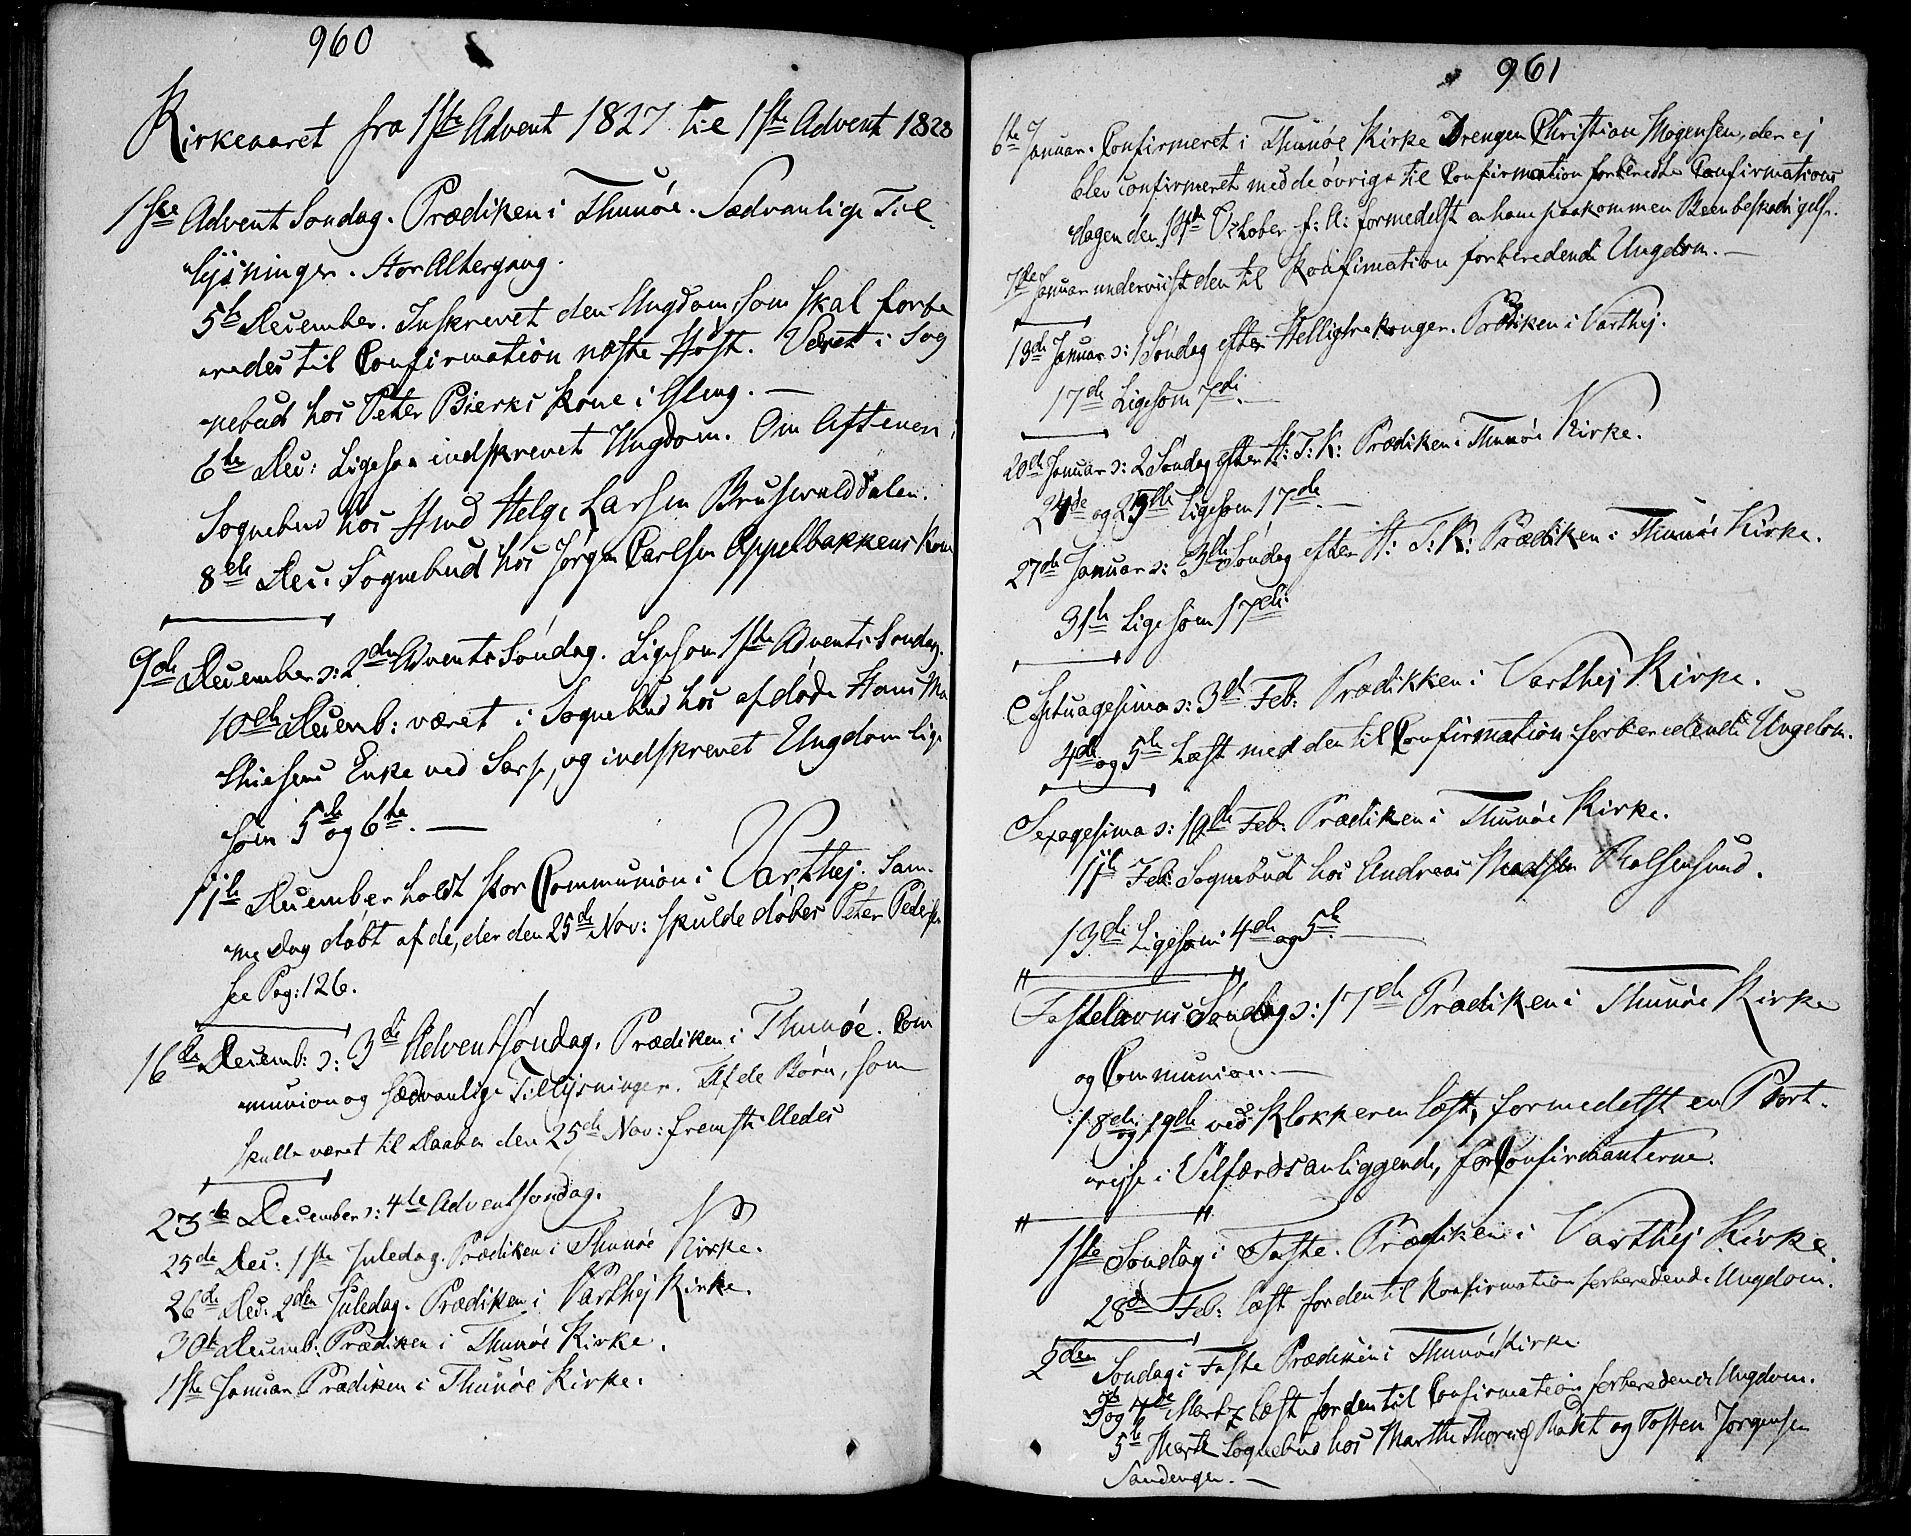 960
Kirkeaaret fra 1ste Advent 1827 til 1ste Advent 1828
1ste Advent Søndag. Prædiken i Thunöe. Sædvanlige Til
lysninger. Stor Altergang.
5te December. Inskrevet den Ungdom som skal forbe
redes til Confirmation næste Høst. Været i Sog
nebud hos Peter Bierks Kone i Gleng. —
6te Dec: Ligesaa indskrevet Ungdom. Om Aftenen i
Sognebud hos Helge Larsen
8de Dec: Sognebud hos Jørgen Carlsen Appelbakkens Kone
9de December ɔ: 2den Advents Søndag. Ligesom 1ste Advents Søndag.
10de Decemb: været i Sognebud hos afdøde Hans Ma
thiesens Enke ved Sarp, og indskrevet Ungdom lige
som 5te og 6te. —
11te December holdt stor Communion i Varthej. Sam-
me Dag døbt af de, der den 25de Nov: skulde døbes Peter Peders
see Pag: 126.
16de Decemb: ɔ: 3die Adventsøndag. Prædiken i Thunöe. Com
munion og sædvanlige Tillysninger. Af de Børn, som
skulle været til Daaben den 25de Nov: fremstilledes
23de December ɔ: 4de Adventsøndag.
25de Dec: 1ste Juledag. Prædiken i Thunöe Kirke.
26de Dec: 2den Juledag. Prædiken i Varthej Kirke.
30te Decemb: Prædiken i Thunöe Kirke.
1ste Januar Prædiken i Thunöe Kirke.
961
6te Januar. Confirmeret i Thunöe Kirke Drengen Christian Mogensen, der ej
blev confirmeret med de øvrige til Confirmation forberedte Confirmations
dagen den 14de October f: A: formedelst en ham paakommen Beenbeskadigelse.
7de Januar underviist den til Konfirmation forberedende Ungdom. —
13de Januar ɔ: 1 Søndag efter Helligtrekonger. Prædiken i Varthej.
17de Ligesom 7de. —
20de Januar ɔ: 2 Søndag efter H: T: K: Prædiken i Thunöe Kirke.
24de og 25de Ligesom 17de. —
27de Januar ɔ: 3de Søndag efter H: T: K: Prædiken i Thunöe Kirke.
31te Ligesom 17de.
Septuagesima ɔ: 3de Feb: Prædikken i Varthej Kirke.
4de og 5te Læst med den til Confirmation forberedende Ungdom.
Sexagesima ɔ: 10de Feb: Prædiken i Thunöe Kirke.
11te Feb: Sognebud hos Andreas Madsen Rolfsensund.
13de Ligesom 4de og 5te. —
Fastelavns Søndag ɔ: 17de Prædiken i Thunöe Kirke
og Communion. —
18de og 19de ved Klokkeren læst, formedelst en Bort-
rejse i Velfærdsanliggende, for Confirmanterne.
1ste Søndag i Faste. Prædiken i Varthej Kirke.
28de Feb: læst for den til Konfirmation forberedende Ungdom.
2den Søndag i Faste Prædiken i Thunöe Kirke.
3de og 4de Martz læst for den til Confirmation forberedende Ungdom.
5te Martz Sognebud hos Marthe og Tosten Jørgensen
Sandengen. —